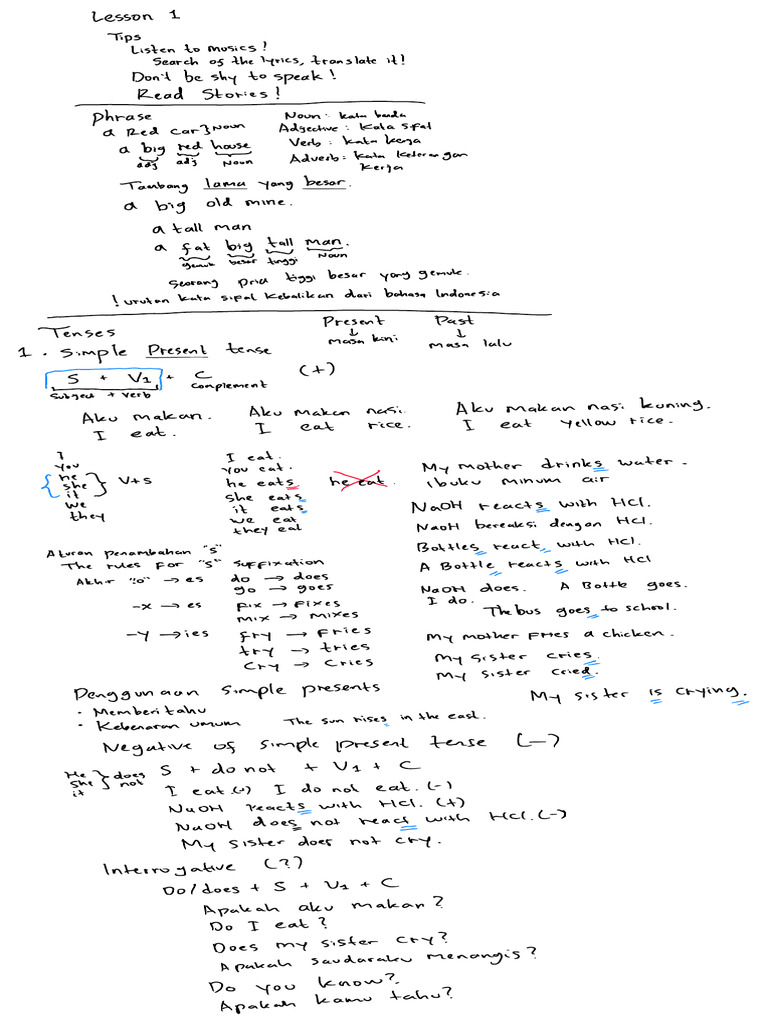 Lesson 1
Tips
Listen to musics!
Search of the lyrics, translate it!
Don't be shy to speak!
Read Stories!
Phrase
a Red car } Noun
a big red house
adj adj Noun
Noun : kata benda
Adjective : Kata sifat
Verb : kata kerja
Adverb : kata keterangan
kerja
Tambang lama yang besar.
a big old mine.
a tall man
a fat big tall man.
gemuk besar tinggi Noun
Seorang pria tiggi besar yang gemuk.
! urutan kata sifat kebalikan dari bahasa Indonesia
Tenses
Present Past
↓ ↓
masa kini masa lalu
1. Simple Present tense
S + V1 + C (+)
Subject + verb complement
Aku makan. Aku makan nasi. Aku makan nasi kuning.
I eat. I eat rice. I eat yellow rice.
I
you
he
she
it
we
they
V+s
I eat.
you eat.
he eats he eat.
she eats
it eats
we eat
they eat
My mother drinks water.
ibuku minum air
NaOH reacts with HCl.
NaOH bereaksi dengan HCl.
Bottles react with HCl.
A Bottle reacts with HCl
Aturan penambahan "s"
The rules for "s" suffixation
Akhir "o" → es do → does
go → goes
-x → es fix → fixes
mix → mixes
-y → ies fry → fries
try → tries
cry → cries
NaOH does. A Bottle goes.
I do.
The bus goes to school.
My mother fries a chicken.
My sister cries.
My sister cried.
My sister is crying.
Penggunaan simple presents
· Memberitahu
· Kebenaran umum The sun rises in the east.
Negative of simple present tense (-)
He
she
it
does
not
S + do not + V1 + C
I eat.(+) I do not eat.(-)
NaOH reacts with HCl. (+)
NaOH does not react with HCl.(-)
My sister does not cry.
Interrogative (?)
Do/does + S + V1 + C
Apakah aku makan?
Do I eat?
Does my sister cry?
Apakah saudaraku menangis?
Do you know?
Apakah kamu tahu?